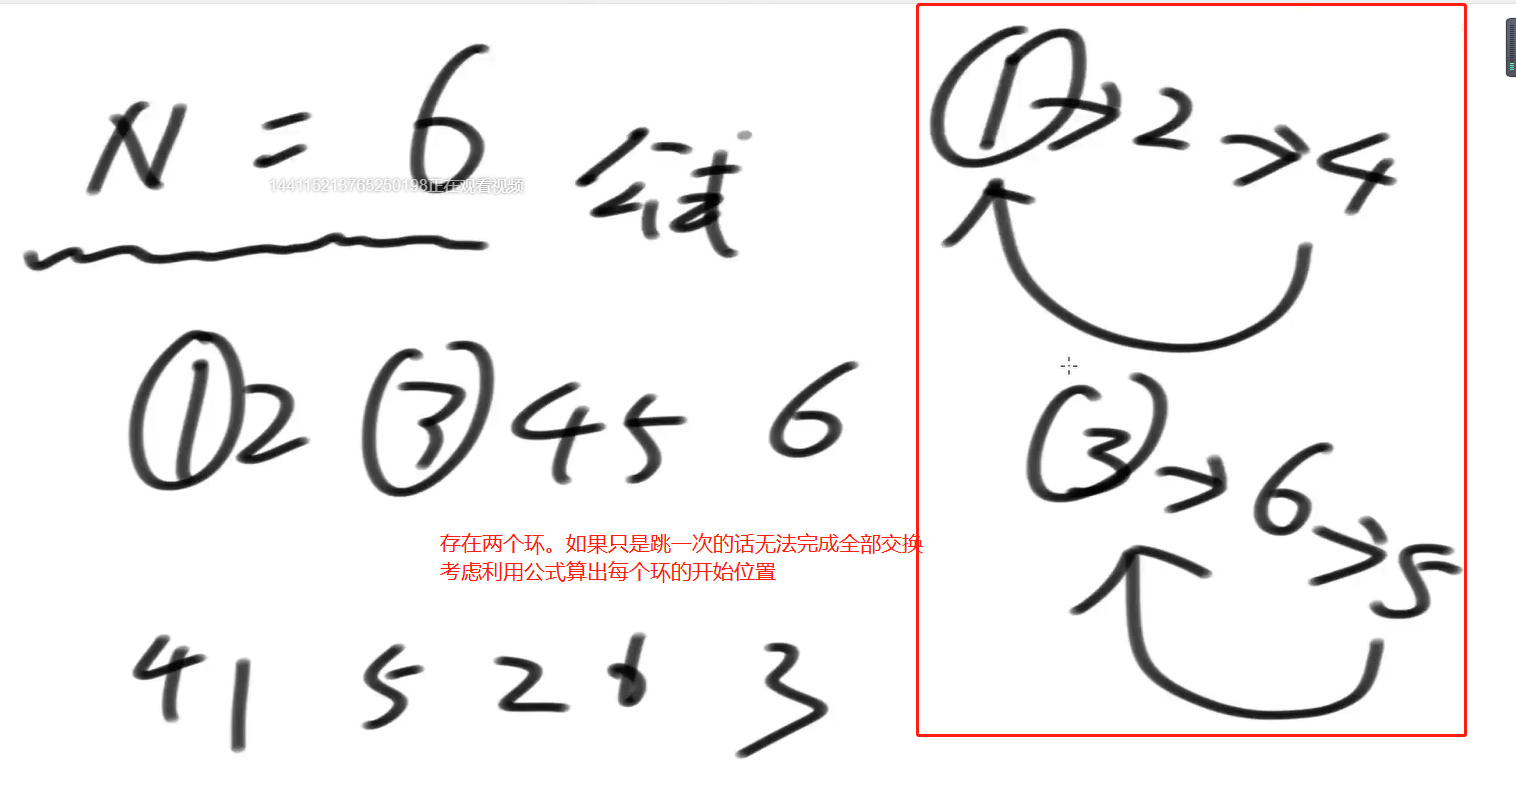 N = 6 公式
144115213765250198正在观看视频
① 2 ③ 4 5 6
存在两个环。如果只是跳一次的话无法完成全部交换
考虑利用公式算出每个环的开始位置
4 1 5 2 6 3
① → 2 → 4
③ → 6 → 5